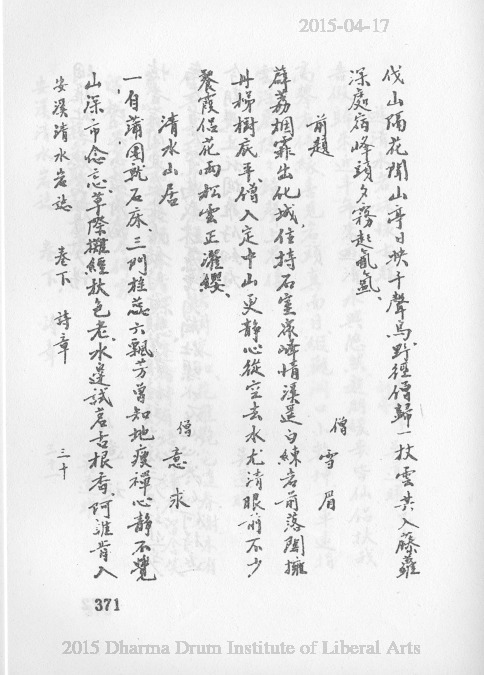 2015-04-17
伐山隔花聞山亭日暎千聲鳥野徑僧歸一杖雲共入藤蘿
深處宿峰頭夕霧起氤氳
前題
僧 雪眉
薜荔烟霏出化城住持石室衆峰情溪邊白練岩前落閣擁
丹梯樹底平僧入定中山更靜心從空去水尤清眼前不少
餐霞侶花雨松雲正濯纓
清水山居
僧 意求
一自蒲團就石床三門桂蕊六飄芳曾知地瘦禪心靜不覺
山深市念忘草際攤經秋色老水邊試茗古根香阿誰肯入
安溪清水岩誌 卷下 詩章 三十
371
2015 Dharma Drum Institute of Liberal Arts